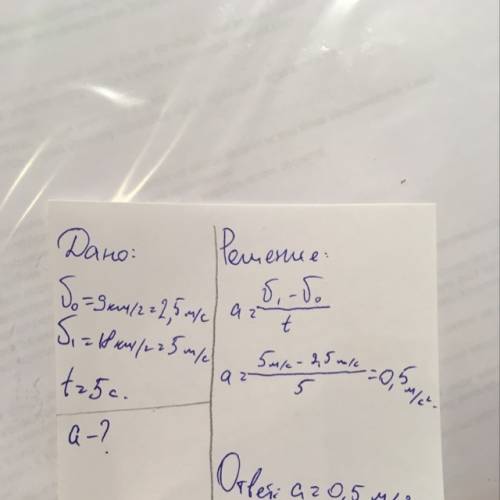 Дано:
υ₀ = 9 км/г = 2,5 м/с
υ₁ = 18 км/г = 5 м/с
t = 5 с.
a - ?
Решение:
a = (υ₁ - υ₀) / t
a = (5 м/с - 2,5 м/с) / 5 = 0,5 м/с².
Ответ: a = 0,5 м/с